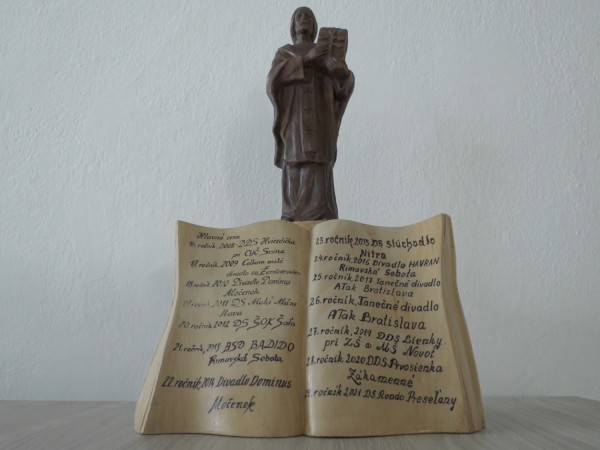 Hlavná cena
16. ročník 2008 DDS Hviezdička
pri CVČ Snina
17. ročník 2009 Celkom malé
divadlo zo
18. ročník 2010 Divadlo Dominus
Močenok
19. ročník 2011 DS Malá
20. ročník 2012 DS ŠOK Šaľa
21. ročník 2013 BSD BADIDO
Rimavská Sobota
22. ročník 2014 Divadlo Dominus
Močenok
23. ročník 2015 DS Slúchadlo
Nitra
24. ročník 2016 Divadlo HAVRAN
Rimavská Sobota
25. ročník 2017 Tanečné divadlo
ATak Bratislava
26. ročník, Tanečné divadlo
ATak Bratislava
27. ročník, 2019 DDS Lienky
pri ZŠ s MŠ Novoť
28. ročník 2020 DDS Prvosienka
Zákamenné
29. ročník 2021 DS Rondo Preseľany